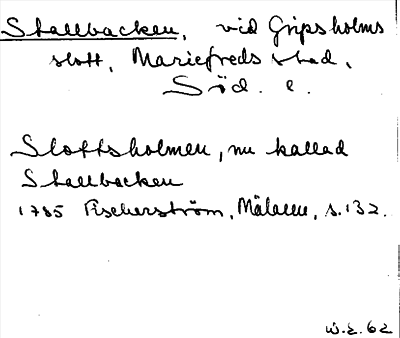 Stallbacken, vid Gripsholms
slott, Mariefreds stad,
Söd. l.
Slottsholmen, nu kallad
Stallbacken
1785 Fischerström, Mälaren, s. 132.
W.E. 62